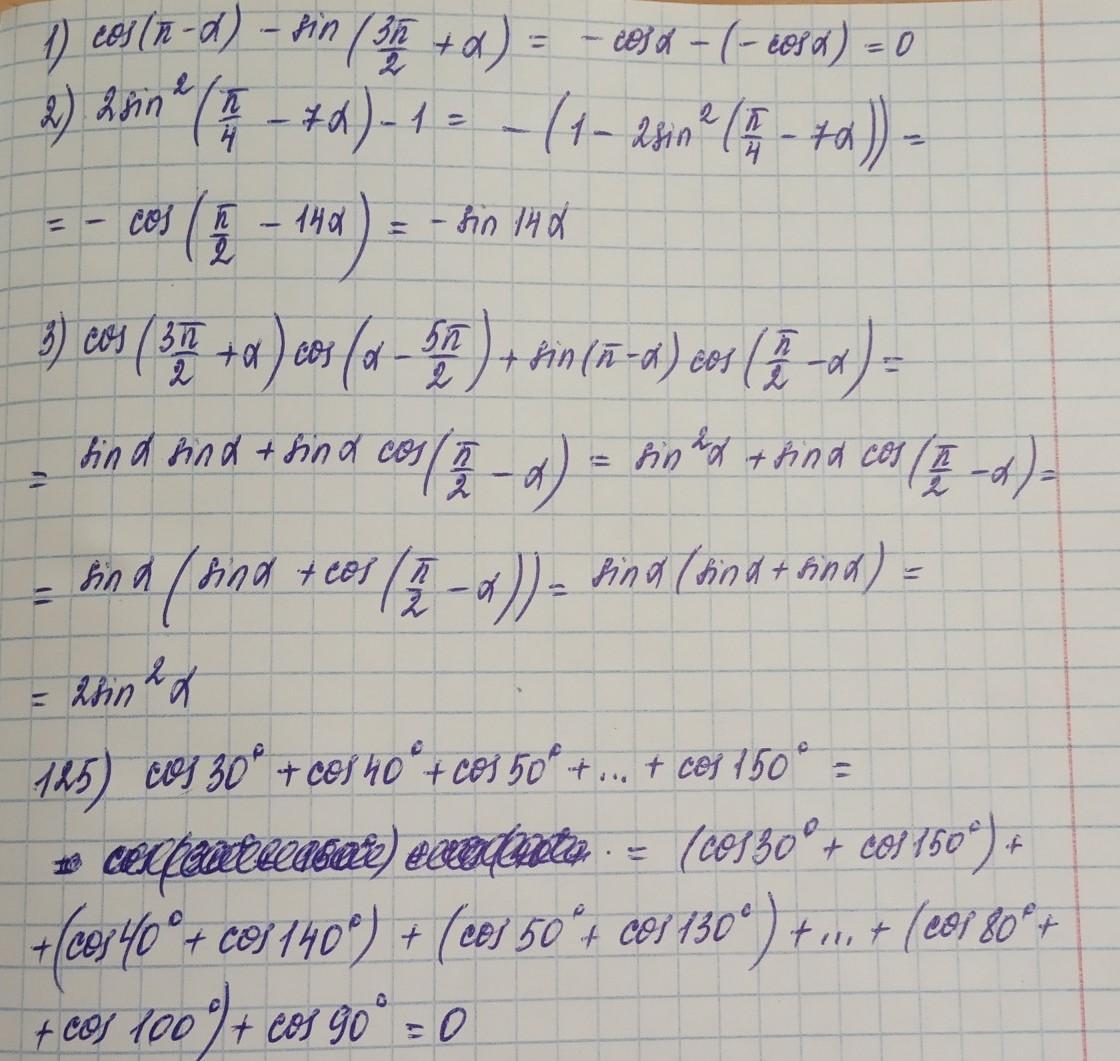 1) cos(π-α) - sin(3π/2 + α) = - cosα - (- cosα) = 0
2) 2sin²(π/4 - 7α) - 1 = - (1 - 2sin²(π/4 - 7α)) =
= - cos(π/2 - 14α) = - sin 14α
3) cos(3π/2 + α) cos(α - 5π/2) + sin(π-α) cos(π/2 - α) =
= sinα sinα + sinα cos(π/2 - α) = sin²α + sinα cos(π/2 - α) =
= sinα (sinα + cos(π/2 - α)) = sinα (sinα + sinα) =
= 2sin²α
125) cos30° + cos40° + cos50° + ... + cos150° =
= (cos30° + cos150°) +
+ (cos40° + cos140°) + (cos50° + cos130°) + ... + (cos80° +
+ cos100°) + cos90° = 0